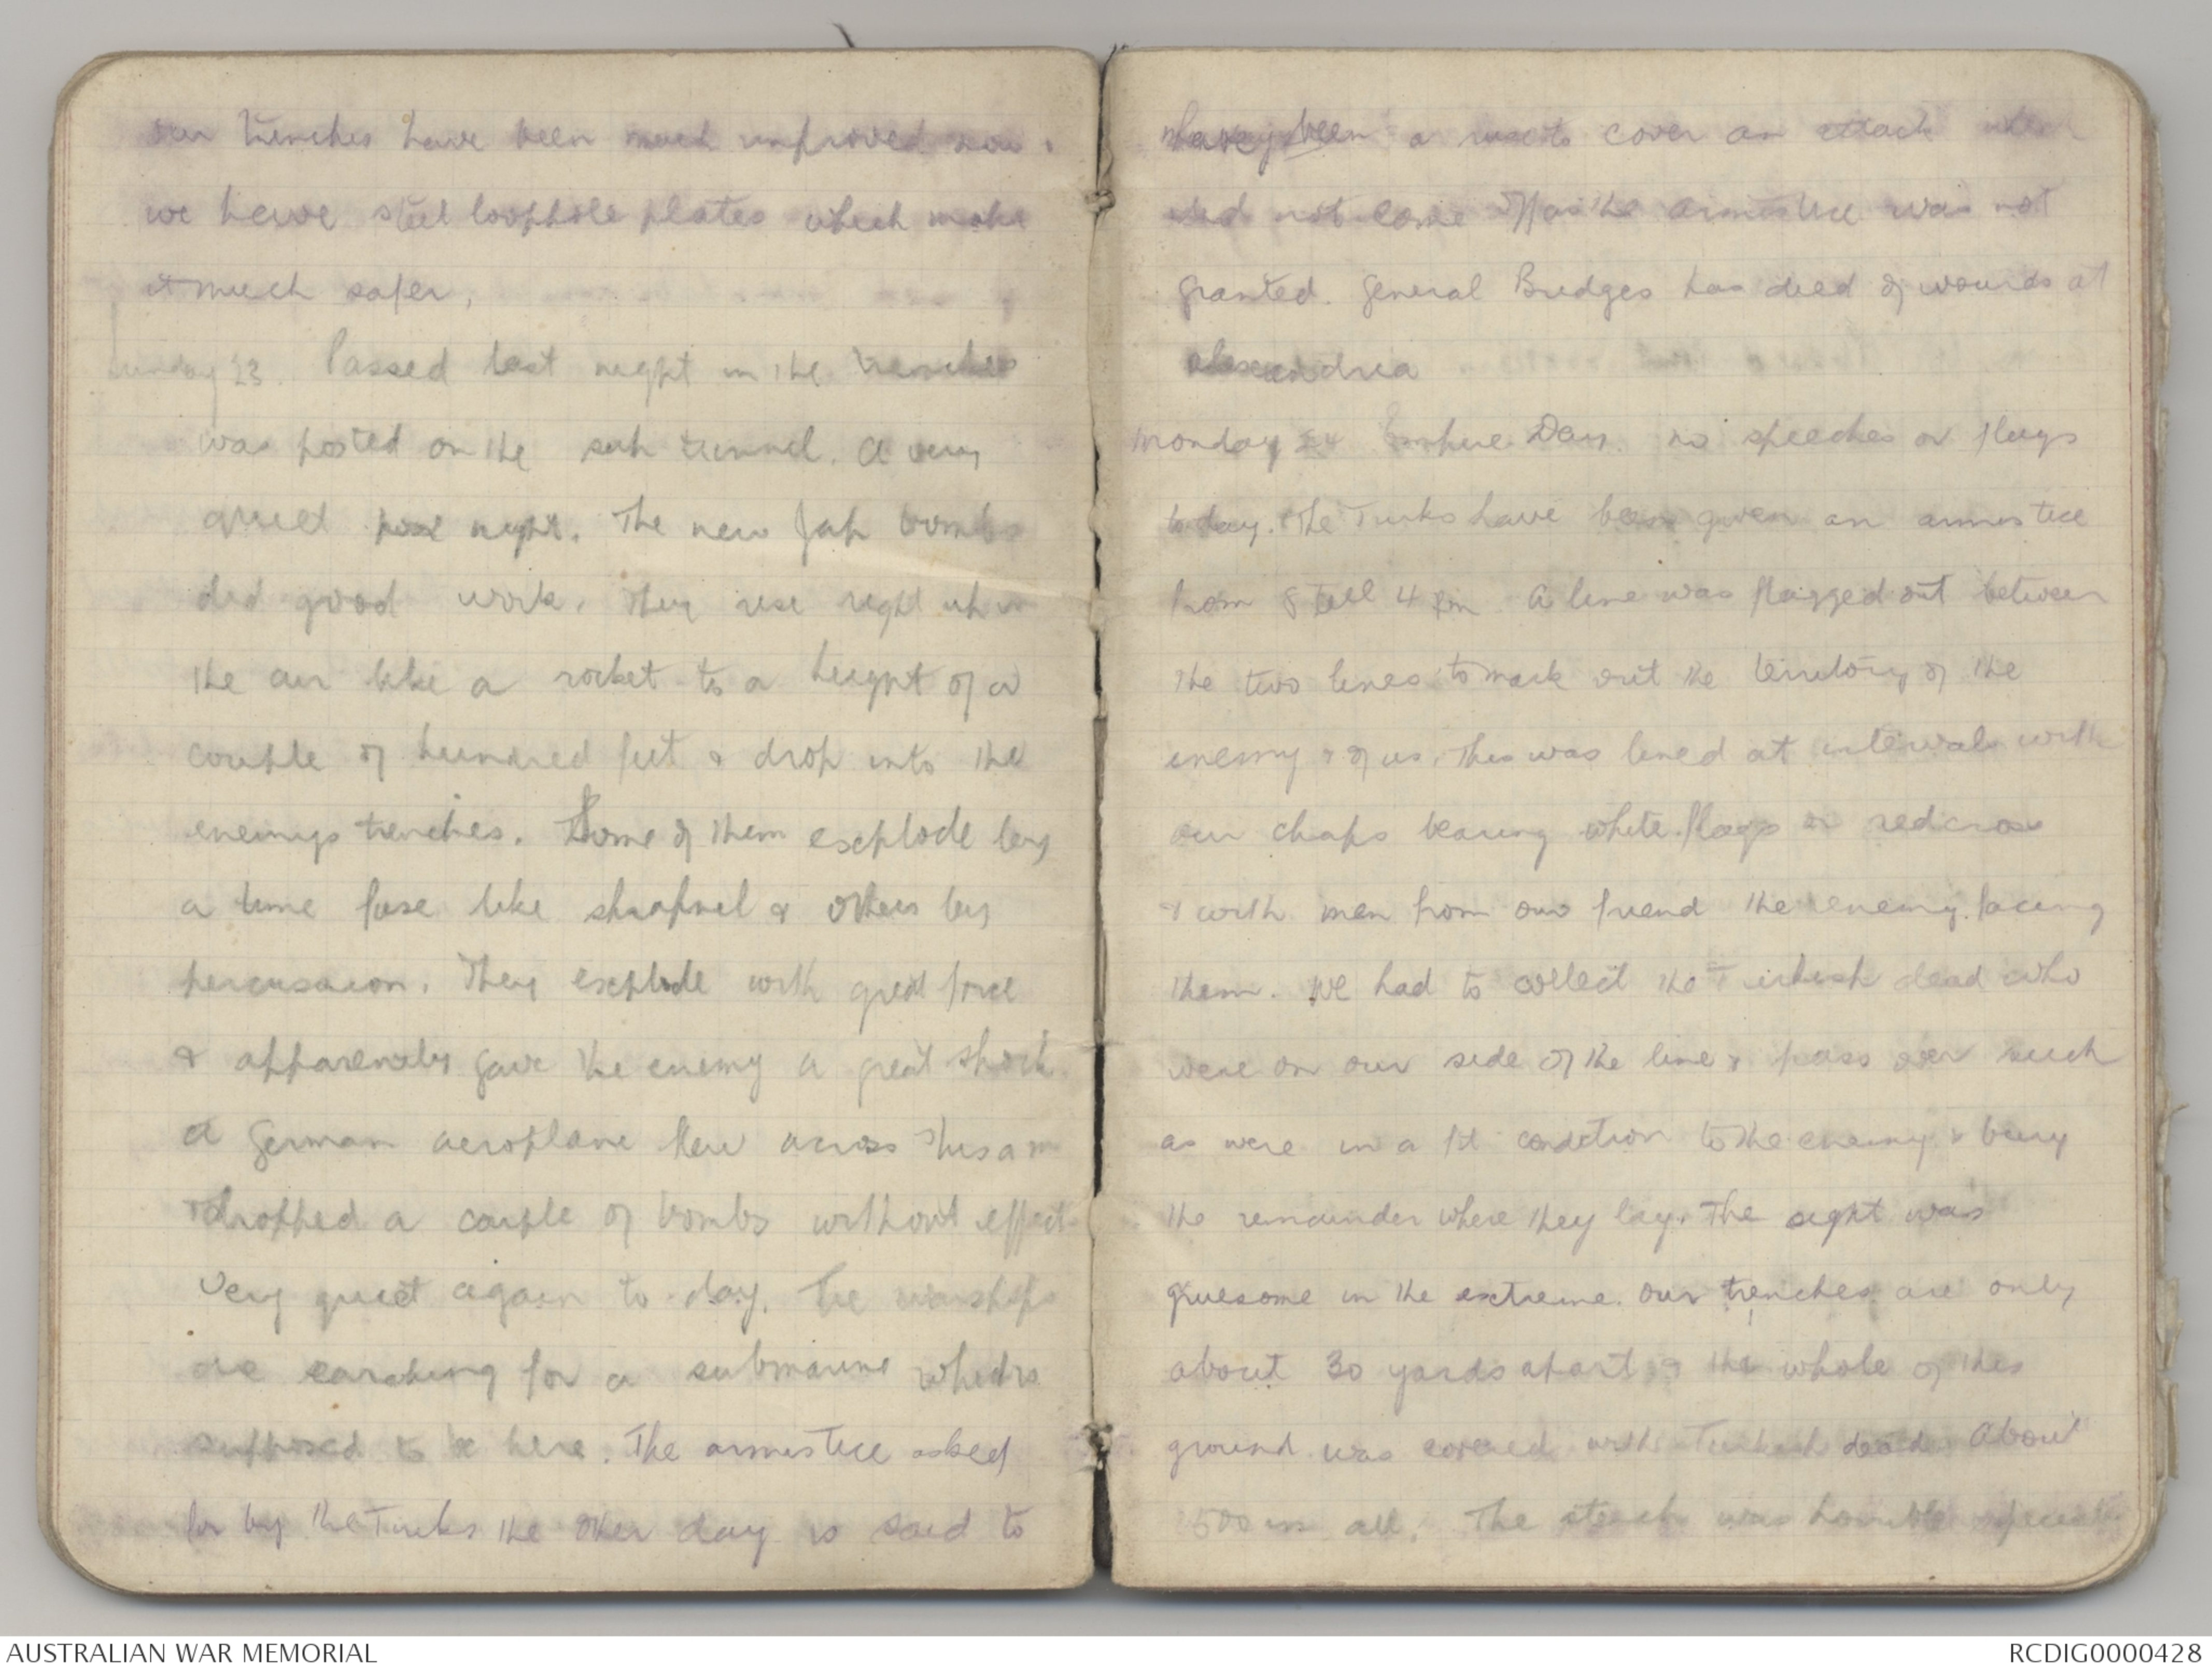 our trenches have been much improved now.
we have steel loophole plates which make
it much safer,
Sunday 23. Passed last night in the trenches
was posted on the sap tunnel. A very
quiet night. The new Jap bombs
did good work. They rise right up in
the air like a rocket to a height of a
couple of hundred feet & drop into the
enemys trenches. Some of them explode by
a time fuse like shrapnel & others by
percussion. They explode with great force
& apparently gave the enemy a great shock.
A German aeroplane flew across this am
& dropped a couple of bombs without effect
Very quiet again to-day. The warships
are searching for a submarine which is
supposed to be here. The armistice asked
for by the Turks the other day is said to
have been a ruse to cover an attack which
did not come off as the armistice was not
granted. General Bridges has died of wounds at
Alexandria
Monday 24 Empire Day. no speeches or flags
to day. The Turks have been given an armistice
from 8 till 4 pm. A line was flagged out between
the two lines to mark out the territory of the
enemy & of us. This was lined at intervals with
our chaps bearing white flags or red cross
& with men from our friend the enemy facing
them. We had to collect the Turkish dead who
were on our side of the line & pass over such
as were in a fit condition to the enemy & bury
the remainder where they lay. The sight was
gruesome in the extreme. Our trenches are only
about 30 yards apart & the whole of this
ground was covered with Turkish dead. About
500 in all. The stench was horrible
AUSTRALIAN WAR MEMORIAL
RCDIG0000428